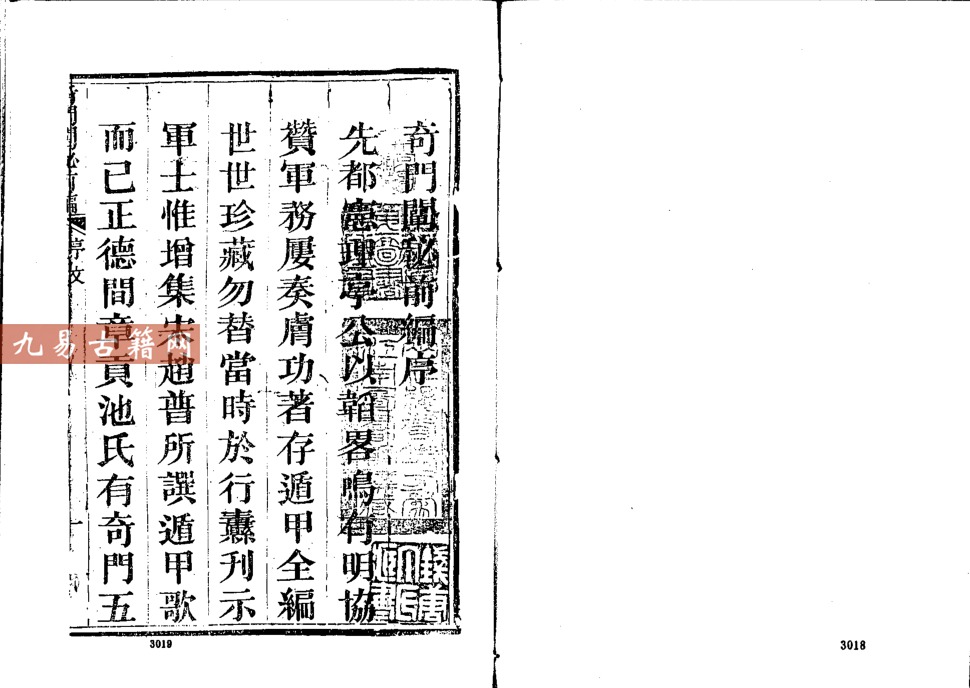 奇門闡秘前編序
先都憲理亭公以韜畧鳴有明協
贊軍務屢奏膚功著存遁甲全編
世世珍藏勿替當時於行纛刊示
軍士惟增集宋趙普所譔遁甲歌
而已正德間章貢池氏有奇門五
九易古籍网
3019
3018